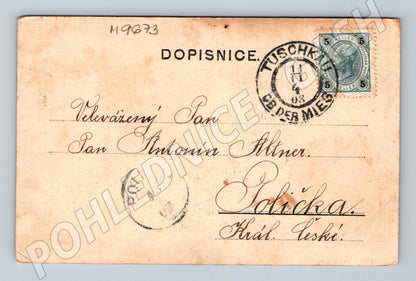 M9673
DOPISNICE.
TUSCHKAU
11
4
03
OB DER MIES
5 5
5 5
Velevážený Pan
Pan Antonin Altner.
Polička.
Král. České.
POL
03
POHLEDNICE